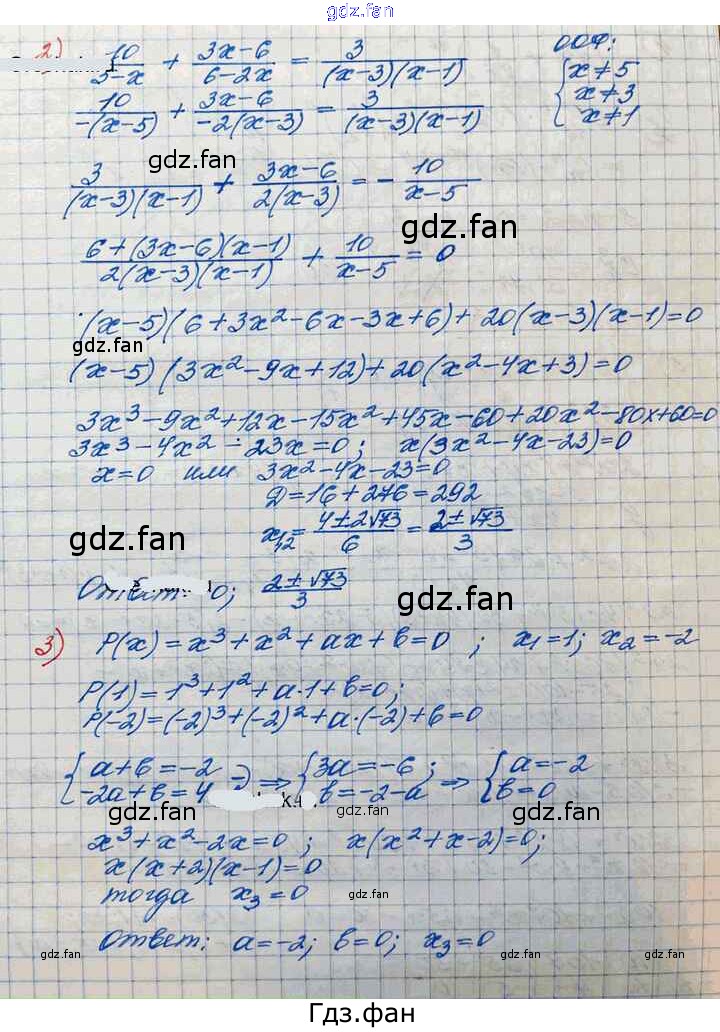 gdz.top
gdz.fan
2) 10/(5-x) + (3x-6)/(6-2x) = 3/((x-3)(x-1)) ООФ:
{x≠5
x≠3
x≠1
10/(-(x-5)) + (3x-6)/(-2(x-3)) = 3/((x-3)(x-1))
gdz.fan
3/((x-3)(x-1)) + (3x-6)/(2(x-3)) = - 10/(x-5)
gdz.fan
(6+(3x-6)(x-1))/(2(x-3)(x-1)) + 10/(x-5) = 0
(x-5)(6+3x²-6x-3x+6)+20(x-3)(x-1)=0
gdz.fan
(x-5)(3x²-9x+12)+20(x²-4x+3)=0
3x³-9x²+12x-15x²+45x-60+20x²-80x+60=0
3x³-4x²-23x=0; x(3x²-4x-23)=0
x=0 или 3x²-4x-23=0
Д=16+276=292
gdz.fan
x₁,₂ = (4±2√73)/6 = (2±√73)/3
Ответ: 0; (2±√73)/3
gdz.fan
3) P(x)=x³+x²+ax+b=0 ; x₁=1; x₂=-2
P(1)=1³+1²+a·1+b=0;
P(-2)=(-2)³+(-2)²+a·(-2)+b=0
{a+b=-2
-2a+b=4 -) ⇒ {3a=-6;
b=-2-a ⇒ {a=-2
b=0
gdz.fan
gdz.fan
gdz.fan
x³+x²-2x=0 ; x(x²+x-2)=0;
x(x+2)(x-1)=0
тогда x₃=0
gdz.fan
Ответ: a=-2; b=0; x₃=0
gdz.fan
gdz.fan
gdz.fan
Гдз.фан